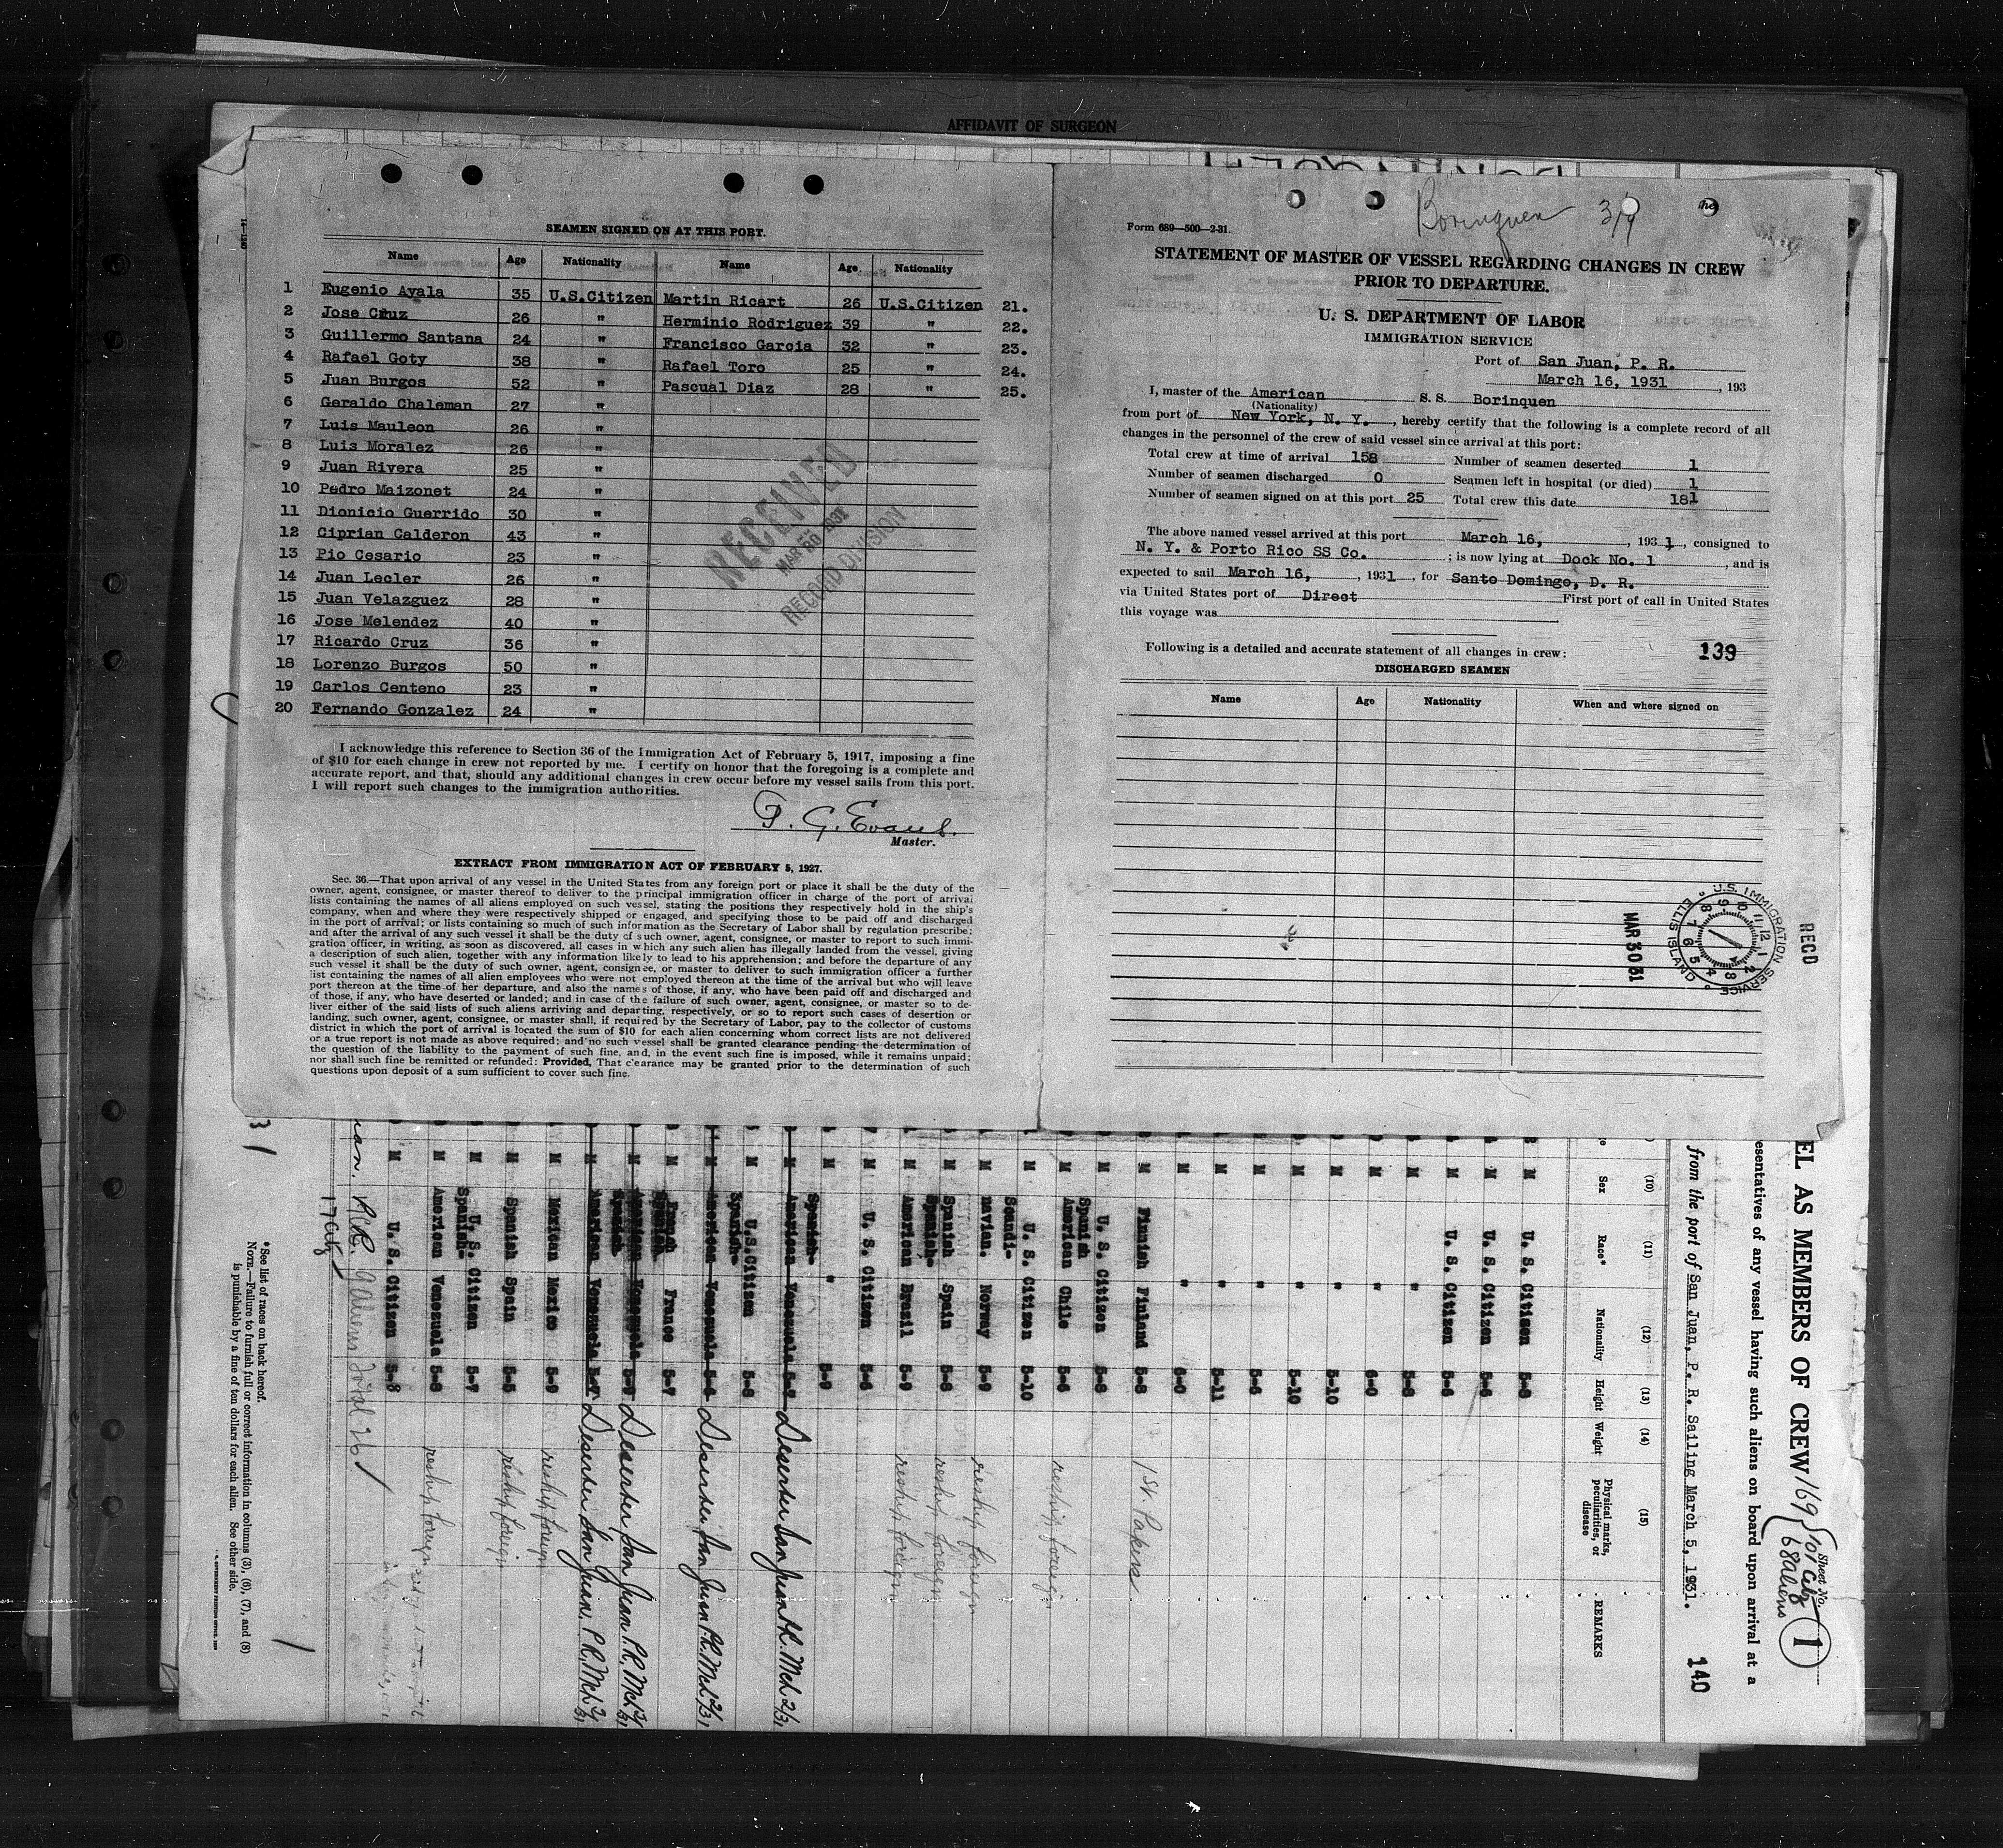 AFFIDAVIT OF SURGEON
SEAMEN SIGNED ON AT THIS PORT.
Name Age Nationality Name Age Nationality
1 Eugenio Ayala 35 U.S.Citizen Martin Ricart 26 U.S.Citizen 21.
2 Jose Cruz 26 " Herminio Rodriguez 39 " 22.
3 Guillermo Santana 24 " Francisco Garcia 32 " 23.
4 Rafael Goty 38 " Rafael Toro 25 " 24.
5 Juan Burgos 52 " Pascual Diaz 28 " 25.
6 Geraldo Chaleman 27 "
7 Luis Mauleon 26 "
8 Luis Moralez 26 "
9 Juan Rivera 25 "
10 Pedro Maizonet 24 "
11 Dionicio Guerrido 30 "
12 Ciprian Calderon 43 "
13 Pio Cesario 23 "
14 Juan Lecler 26 "
15 Juan Velazguez 28 "
16 Jose Melendez 40 "
17 Ricardo Cruz 36 "
18 Lorenzo Burgos 50 "
19 Carlos Centeno 23 "
20 Fernando Gonzalez 24 "
RECEIVED
MAR 30 1931
RECORD DIVISION
I acknowledge this reference to Section 36 of the Immigration Act of February 5, 1917, imposing a fine
of $10 for each change in crew not reported by me. I certify on honor that the foregoing is a complete and
accurate report, and that, should any additional changes in crew occur before my vessel sails from this port.
I will report such changes to the immigration authorities.
F. G. Evans.
Master.
EXTRACT FROM IMMIGRATION ACT OF FEBRUARY 5, 1927.
Sec. 36.—That upon arrival of any vessel in the United States from any foreign port or place it shall be the duty of the
owner, agent, consignee, or master thereof to deliver to the principal immigration officer in charge of the port of arrival
lists containing the names of all aliens employed on such vessel, stating the positions they respectively hold in the ship's
company, when and where they were respectively shipped or engaged, and specifying those to be paid off and discharged
in the port of arrival; or lists containing so much of such information as the Secretary of Labor shall by regulation prescribe;
and after the arrival of any such vessel it shall be the duty of such owner, agent, consignee, or master to report to such immi-
gration officer, in writing, as soon as discovered, all cases in which any such alien has illegally landed from the vessel, giving
a description of such alien, together with any information likely to lead to his apprehension; and before the departure of any
such vessel it shall be the duty of such owner, agent, consignee, or master to deliver to such immigration officer a further
list containing the names of all alien employees who were not employed thereon at the time of the arrival but who will leave
port thereon at the time of her departure, and also the names of those, if any, who have been paid off and discharged and
of those, if any, who have deserted or landed; and in case of the failure of such owner, agent, consignee, or master so to de-
liver either of the said lists of such aliens arriving and departing, respectively, or so to report such cases of desertion or
landing, such owner, agent, consignee, or master shall, if required by the Secretary of Labor, pay to the collector of customs
district in which the port of arrival is located the sum of $10 for each alien concerning whom correct lists are not delivered
or a true report is not made as above required; and no such vessel shall be granted clearance pending the determination of
the question of the liability to the payment of such fine, and, in the event such fine is imposed, while it remains unpaid;
nor shall such fine be remitted or refunded: Provided, That clearance may be granted prior to the determination of such
questions upon deposit of a sum sufficient to cover such fine.
Borinquen 3/9
Form 689—500—2-31.
STATEMENT OF MASTER OF VESSEL REGARDING CHANGES IN CREW
PRIOR TO DEPARTURE.
U. S. DEPARTMENT OF LABOR
IMMIGRATION SERVICE
Port of San Juan, P. R.
March 16, 1931, 193
I, master of the American S. S. Borinquen
(Nationality)
from port of New York, N. Y., hereby certify that the following is a complete record of all
changes in the personnel of the crew of said vessel since arrival at this port:
Total crew at time of arrival 158 Number of seamen deserted 1
Number of seamen discharged 0 Seamen left in hospital (or died) 1
Number of seamen signed on at this port 25 Total crew this date 181
The above named vessel arrived at this port March 16, , 1931, consigned to
N. Y. & Porto Rico SS Co. ; is now lying at Dock No. 1 , and is
expected to sail March 16, , 1931, for Santo Domingo, D. R.
via United States port of Direct First port of call in United States
this voyage was
Following is a detailed and accurate statement of all changes in crew: 139
DISCHARGED SEAMEN
Name Age Nationality When and where signed on
REC'D
U.S. IMMIGRATION SERVICE
ELLIS ISLAND
MAR 30 31
EL AS MEMBERS OF CREW 169
101 Citz
68 aliens
Sheet No. 1
esentatives of any vessel having such aliens on board upon arrival at a
from the port of San Juan, P. R. Sailing March 5, 1931. 140
(10) (11) (12) (13) (14) (15)
Sex Race* Nationality Height Weight Physical marks, peculiarities, or disease REMARKS
M U. S. Citizen 5-8
M U. S. Citizen 5-6
M U. S. Citizen 5-6
M " " 5-8
M " " 6-0
M " " 5-10
M " " 5-10
M " " 5-6
M " " 5-11
M " " 6-0
M Finnish Finland 5-8 1st Papers
M U. S. Citizen 5-8
M Spanish American Chile 5-6 reship foreign
M U. S. Citizen 5-10
M Scandinavian. Norway 5-9 reship foreign
M Spanish Spain 5-8 reship foreign
M Spanish- American Brazil 5-9 reship foreign
M U. S. Citizen 5-6
M " 5-9
M Spanish- American Venezuela 5-7 Deserter San Juan P.R. Mch 2/31
M U.S.Citizen 5-8
M Spanish- American Venezuela 5-6 Deserter San Juan P.R. Mch 2/31
M French France 5-7
M Spanish American Venezuela 5-5 Deserter San Juan P.R. Mch 2/31
M American Venezuela 5-7 Deserter San Juan, P.R. Mch 2/31
M Mexican Mexico 5-9 reship foreign
M Spanish Spain 5-5 reship foreign
M U. S. Citizen 5-7
M Spanish- American Venezuela 5-8 reship foreign
M U. S. Citizen 5-8
17 Citz
Aliens Total 26
*See list of races on back hereof.
NOTE.—Failure to furnish full or correct information in columns (3), (6), (7), and (8)
is punishable by a fine of ten dollars for each alien. See other side.